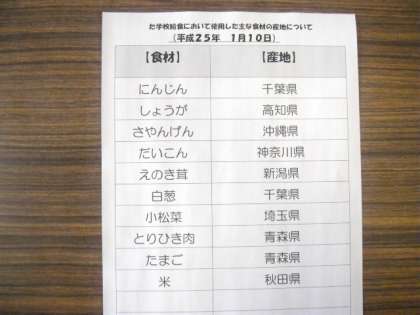 た学校給食において使用した主な食材の産地について
(平成25年 1月10日)
【食材】 【産地】
にんじん 千葉県
しょうが 高知県
さやんげん 沖縄県
だいこん 神奈川県
えのき茸 新潟県
白葱 千葉県
小松菜 埼玉県
とりひき肉 青森県
たまご 青森県
米 秋田県